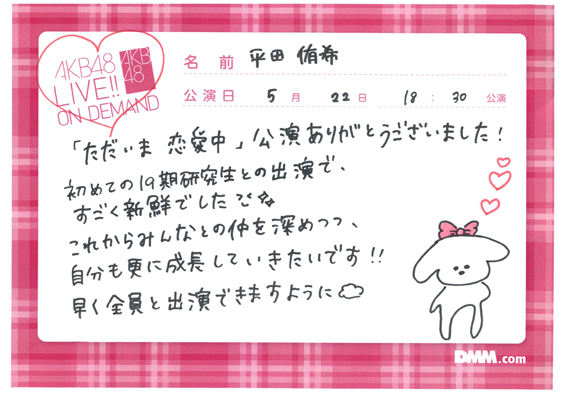 AKB48
LIVE!!
ON DEMAND
AKB
48
名前 平田 侑希
公演日 5月 22日 18:30 公演
「ただいま 恋愛中」公演ありがとうございました!
初めての19期研究生との出演で、
すごく新鮮でした
これからみんなとの仲を深めつつ、
自分も更に成長していきたいです!!
早く全員と出演できますように
DMM.com